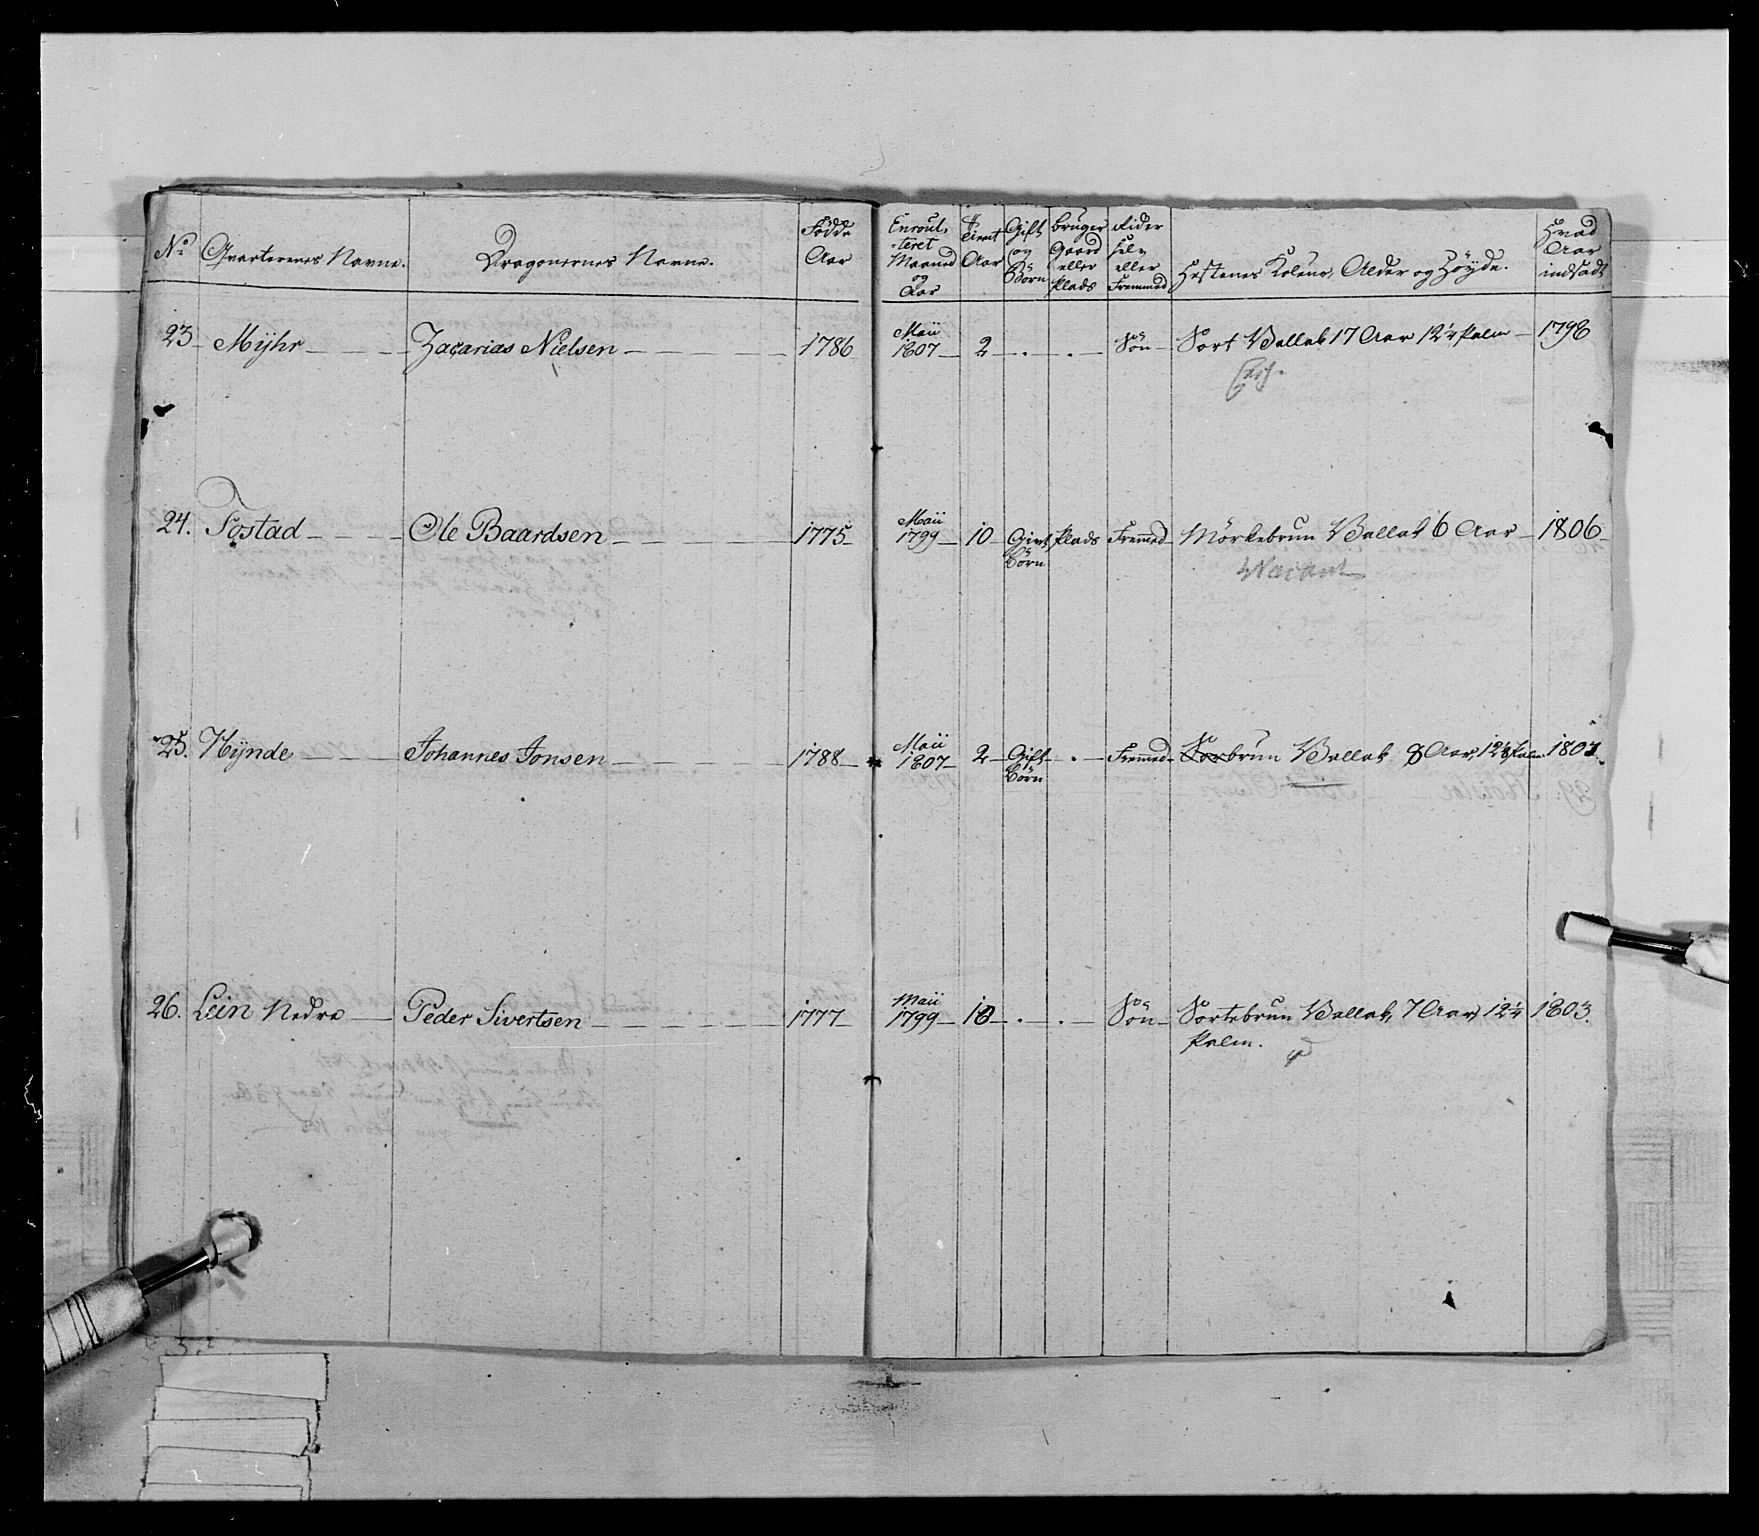 No Qvarterenes Navne. Dragonernes Navne. Födde Aar Enroul-leret Maaned og Aar Tient Aar Gift og Börn bruger Gaard eller Plads Rider Selv eller Fremmed Hestenes Koleur, Alder og Höyde. Hvad Aar indsadt
23 Mÿhr Zacarias Nielsen 1786 Maii 1807 2 Sön Sort Vallak 17 Aar 12 1/4 Palm 1798
24. Tostad Ole Baardsen 1775 Maii 1799 10 Givt, Börn Plads Fremmed Mörkebrun Vallak 6 Aar 1806
Vacant
25. Hÿnde Johannes Jonsen 1788 Maii 1807 2 Gift Börn Fremmed brun Vallak 8 Aar, 12 1/8 Palm 1807
26. Lein Nedre Peder Sivertsen 1777 Maii 1799 10 Sön Sortebrun Vallak, 7 Aar, 12 1/4 1803.
Palm.